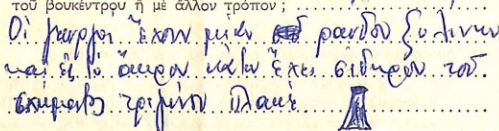 τοῦ βουκέντρου ἢ μὲ ἄλλον τρόπον ;
Οἱ γεωργοὶ ἔχουν μιὰν ξυλίνην
καὶ εἰς τὸ ἄκρον κάτω ἔχει σίδηρον τοῦ
σχήματος τριγώνου πλακέ